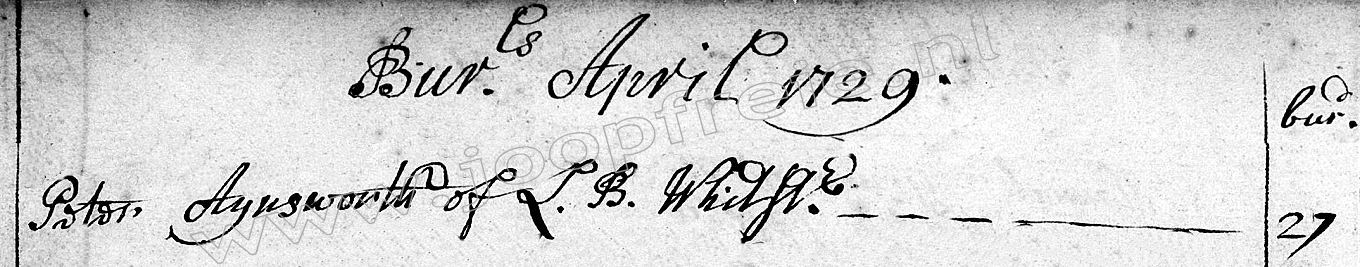 Bur.ls April 1729.
bur.d
Peter Aynsworth of L. B. Whitfd. 27
www.joopfrev.nl